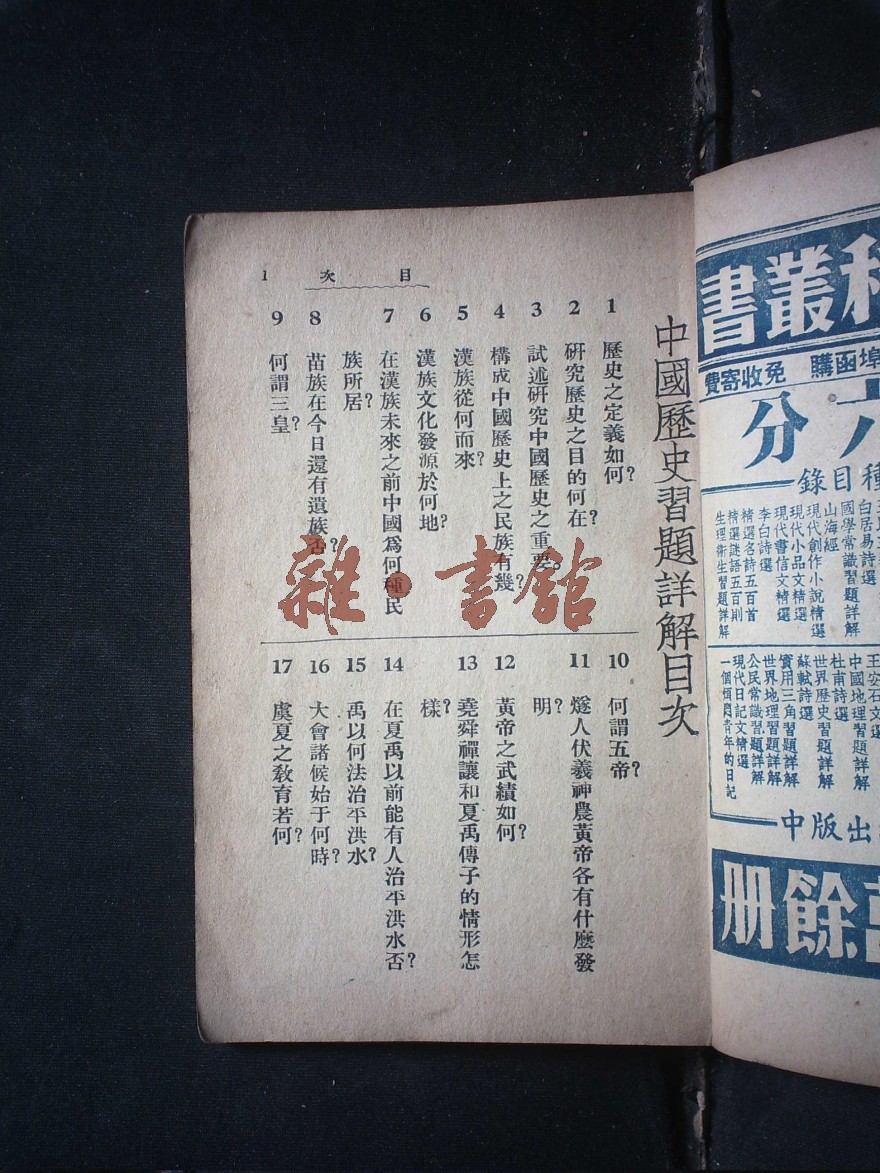 中國歷史習題詳解目次
目次 1
1 歷史之定義如何?
2 研究歷史之目的何在?
3 試述研究中國歷史之重要。
4 構成中國歷史上之民族有幾?
5 漢族從何而來?
6 漢族文化發源於何地?
7 在漢族未來之前中國爲何種民
族所居?
8 苗族在今日還有遺族否?
9 何謂三皇?
10 何謂五帝?
11 燧人伏羲神農黃帝各有什麼發
明?
12 黃帝之武績如何?
13 堯舜禪讓和夏禹傳子的情形怎
樣?
14 在夏禹以前能有人治平洪水否?
15 禹以何法治平洪水?
16 大會諸候始于何時?
17 虞夏之敎育若何?
雜·書館
叢書
埠函購 免收寄費
六分
種目錄
白居易詩選
國學常識習題詳解
山海經
現代創作小說精選
現代小品文精選
現代書信文精選
李白詩選
精選名詩五百首
精選謎語五百則
生理衞生習題詳解
王安石文選
中國地理習題詳解
杜甫詩選
世界歷史習題詳解
蘇軾詩選
實用三角習題詳解
世界地理習題詳解
公民常識習題詳解
現代日記文精選
一個煩悶青年的日記
出版中
餘册